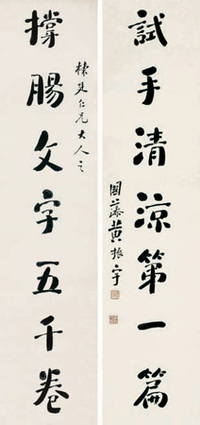 試手清涼第一篇
黃振宇
仁兄大人之
撐腸文字五千卷